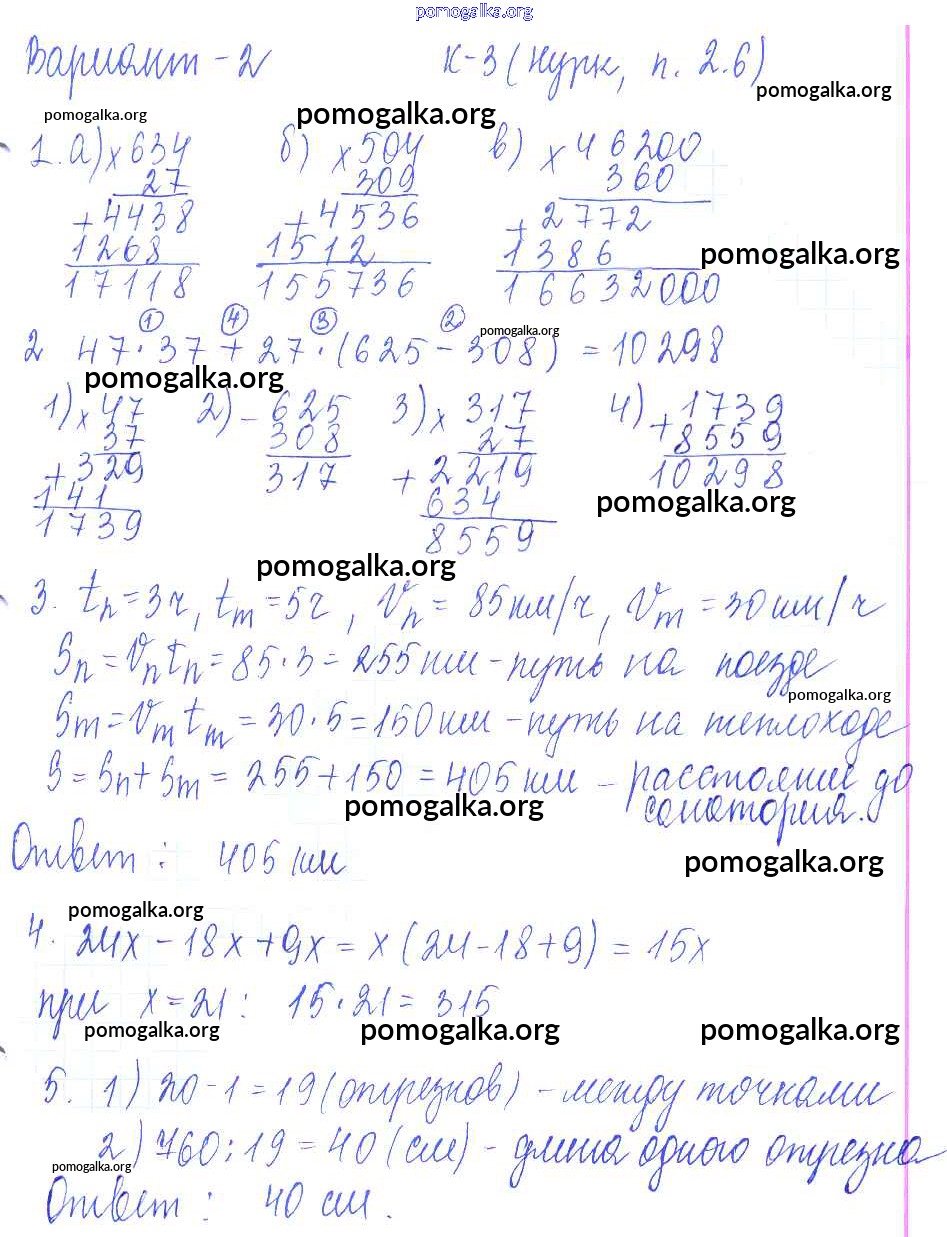 pomogalka.org
Вариант - 2 К-3 (Нурк, п. 2.6)
pomogalka.org
pomogalka.org pomogalka.org
1. а) × 634 б) × 504 в) × 46200
27 309 360
+ 4438 + 4536 + 2772
1268 1512 1386 pomogalka.org
17118 155736 16632000
① ④ ③ ② pomogalka.org
2 47 · 37 + 27 · (625 - 308) = 10298
pomogalka.org
1) × 47 2) - 625 3) × 317 4) + 1739
37 308 27 8559
+ 329 317 + 2219 10298
141 634 pomogalka.org
1739 8559
pomogalka.org
3. tп = 3ч, tт = 5ч, Vп = 85 км/ч, Vт = 30 км/ч
Sп = Vп tп = 85 · 3 = 255 км - путь на поезде
pomogalka.org
Sт = Vт tт = 30 · 5 = 150 км - путь на теплоходе
S = Sп + Sт = 255 + 150 = 405 км - расстояние до
pomogalka.org санатория.
Ответ : 405 км
pomogalka.org
pomogalka.org
4. 24x - 18x + 9x = x (24 - 18 + 9) = 15x
при x = 21 : 15 · 21 = 315
pomogalka.org pomogalka.org pomogalka.org
5. 1) 20 - 1 = 19 (отрезков) - между точками
2) 760 : 19 = 40 (см) - длина одного отрезка
pomogalka.org
Ответ : 40 см.